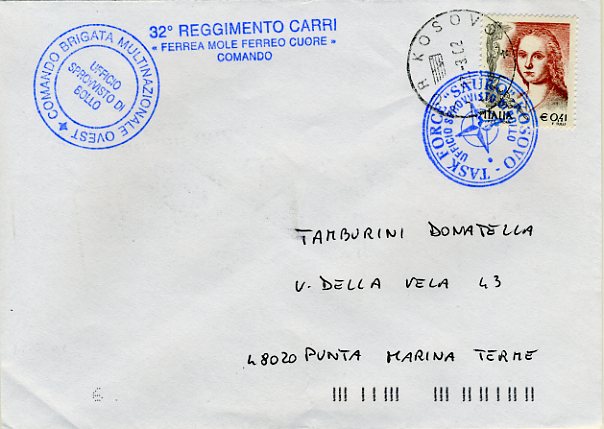 COMANDO BRIGATA MULTINAZIONALE OVEST
UFFICIO
SPROVVISTO DI
BOLLO
32° REGGIMENTO CARRI
« FERREA MOLE FERREO CUORE »
COMANDO
R KOSOVO
ITALIA
€ 0,41
TASK FORCE "SAURO" KOSOVO -
UFFICIO SPROVVISTO DI BOLLO
TAMBURINI DONATELLA
V. DELLA VELA 43
48020 PUNTA MARINA TERME